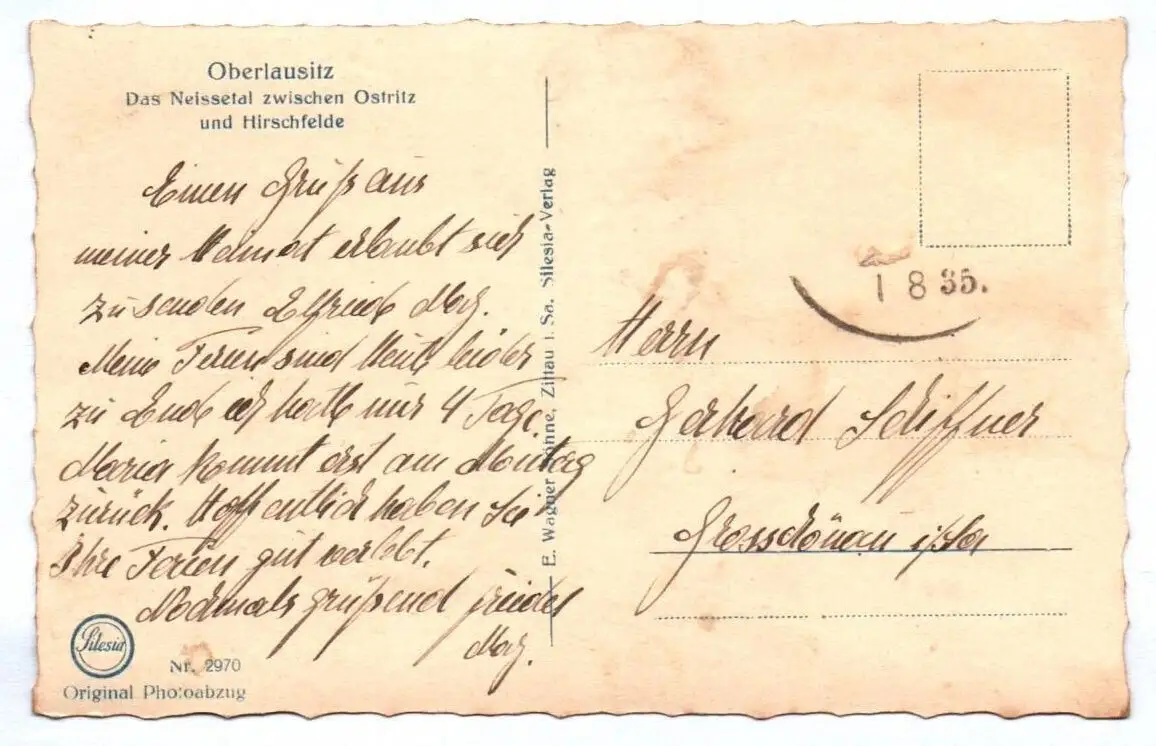 Oberlausitz
Das Neissetal zwischen Ostritz
und Hirschfelde
Einen Gruß aus
meiner Heimat erlaubt sich
zu senden Elfriede
Meine Ferien sind Heute leider
zu Ende ich hatte nur 4 Tage.
Maria kommt erst am Montag
zurück. Hoffentlich haben Sie
Ihre Ferien gut verlebt.
Nochmals grüßend Friedel
Silesia
Nr. 2970
Original Photoabzug
E. Wagner Söhne, Zittau i. Sa. Silesia-Verlag
1 8 35.
Herrn
Gerhard Schiffner
Grossschönau i/Sa